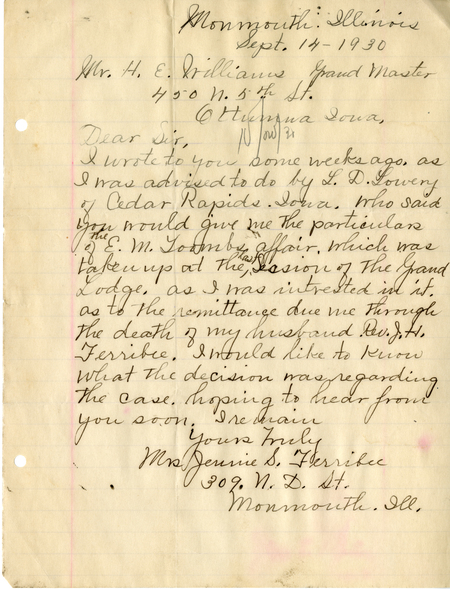 Monmouth. Illinois
Sept. 14-1930
Mr. H. E. Williams Grand Master
450 N. 5th St.
Ottumwa Iowa.
Dear Sir,
I wrote to you some weeks ago. as
I was advised to do by L. D. Lowery
of Cedar Rapids. Iowa. who said
you would give me the particulars
of the E. M. Toombs affair. which was
taken up at the last Session of the Grand
Lodge. as I was intrested in it.
as to the remittance due me through
the death of my husband Rev. J. H.
Ferribee. I would like to know
what the decision was regarding
the case. hoping to hear from
you soon. I remain
Yours Truly
Mrs Jennie S. Ferribee
309. N. D. St.
Monmouth. Ill.